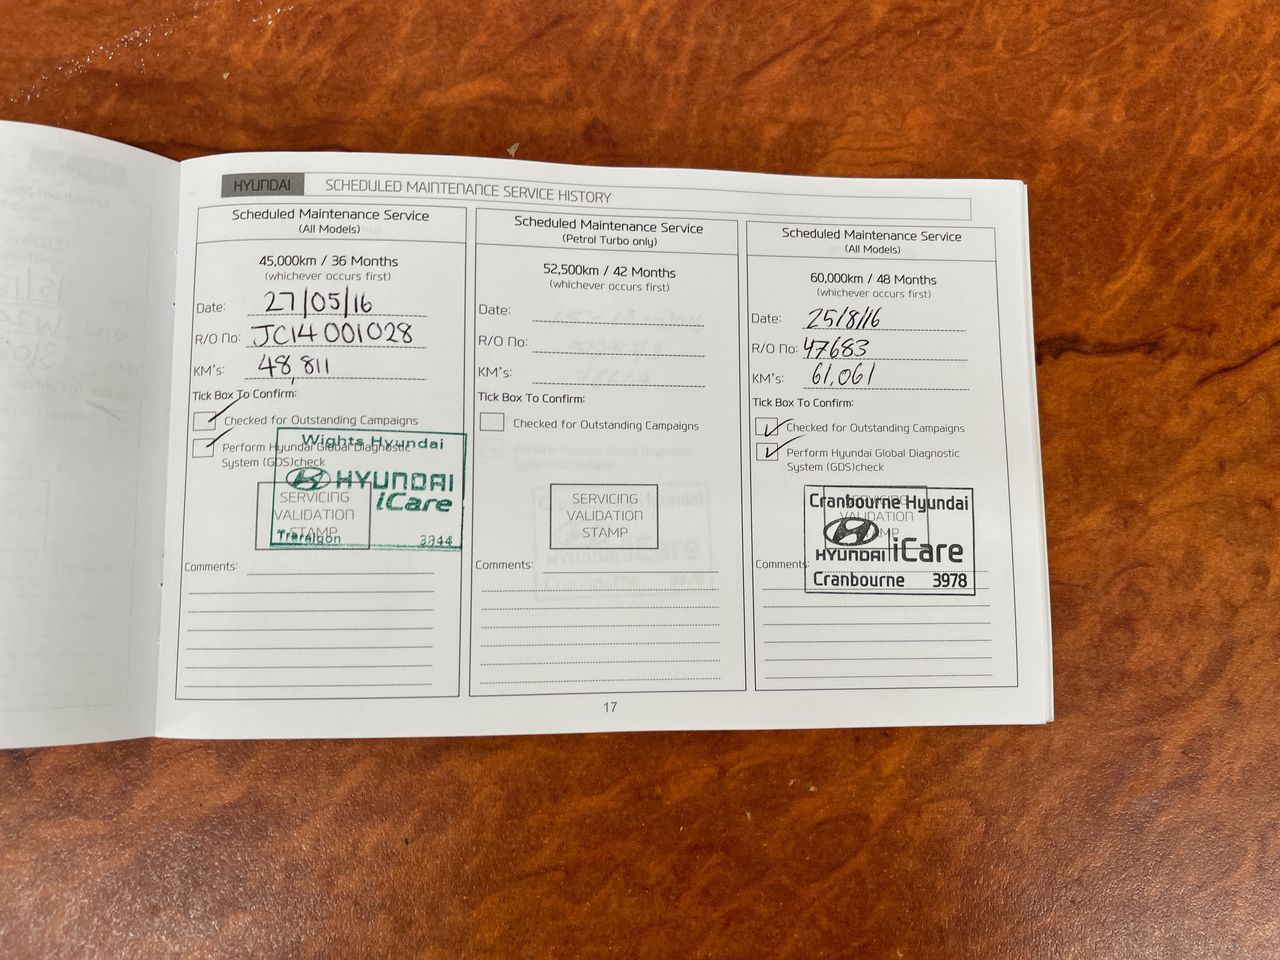 HYUNDAI SCHEDULED MAINTENANCE SERVICE HISTORY
Scheduled Maintenance Service
(All Models)
45,000km / 36 Months
(whichever occurs first)
Date: 27/05/16
R/O No: JC14001028
KM's: 48,811
Tick Box To Confirm:
Checked for Outstanding Campaigns
Perform Hyundai Global Diagnostic
System (GDS)check
Wights Hyundai
HYUNDAI
iCare
Traralgon 3844
SERVICING
VALIDATION
STAMP
Comments:
Scheduled Maintenance Service
(Petrol Turbo only)
52,500km / 42 Months
(whichever occurs first)
Date:
R/O No:
KM's:
Tick Box To Confirm:
Checked for Outstanding Campaigns
SERVICING
VALIDATION
STAMP
Comments:
Scheduled Maintenance Service
(All Models)
60,000km / 48 Months
(whichever occurs first)
Date: 25/8/16
R/O No: 47683
KM's: 61,061
Tick Box To Confirm:
Checked for Outstanding Campaigns
Perform Hyundai Global Diagnostic
System (GDS)check
Cranbourne Hyundai
HYUNDAI iCare
Cranbourne 3978
SERVICING
VALIDATION
STAMP
Comments:
17